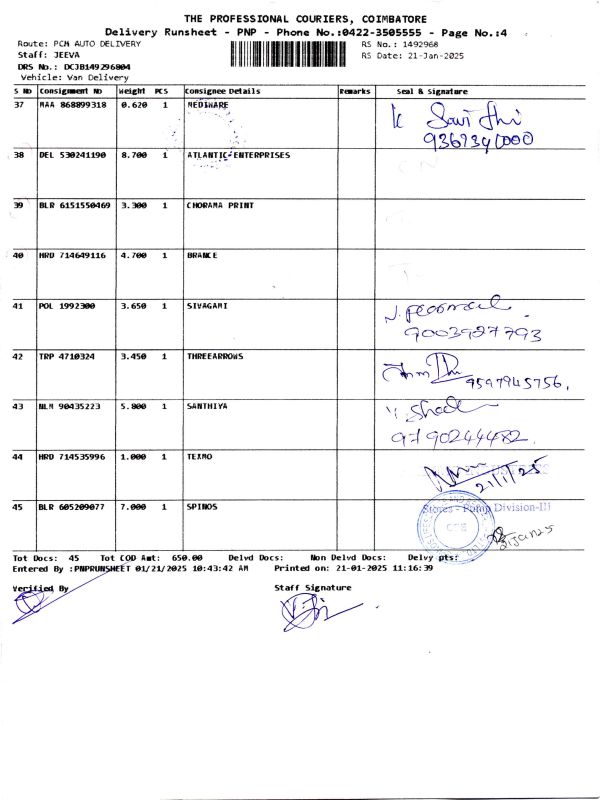 THE PROFESSIONAL COURIERS, COIMBATORE
Delivery Runsheet - PNP - Phone No.:0422-3505555 - Page No.:4
Route: PCM AUTO DELIVERY
RS No.: 1492968
Staff: JEEVA
RS Date: 21-Jan-2025
DRS No.: DCJB149296804
Vehicle: Van Delivery
S NO Consignment NO Weight PCS Consignee Details Remarks Seal & Signature
37 MAA 868899318 0.620 1 MEDIWARE
38 DEL 530241190 8.700 1 ATLANTIC ENTERPRISES
39 BLR 6151550469 3.300 1 CHORAMA PRINT
40 HRD 714649116 4.700 1 BRANCE
41 POL 1992300 3.650 1 SIVAGAMI
9003927793
42 TRP 4710324 3.450 1 THREEARROWS
9597945756.
43 NLM 90435223 5.800 1 SANTHIYA
9790244482.
44 HRD 714535996 1.000 1 TEXMO
21/1/25
45 BLR 605209077 7.000 1 SPINOS
Stores - Pump Division-III
21Jan25
Tot Docs: 45 Tot COD Amt: 650.00 Delvd Docs: Non Delvd Docs: Delvy pts:
Entered By :PNPRUNSHEET 01/21/2025 10:43:42 AM Printed on: 21-01-2025 11:16:39
Verified By
Staff Signature